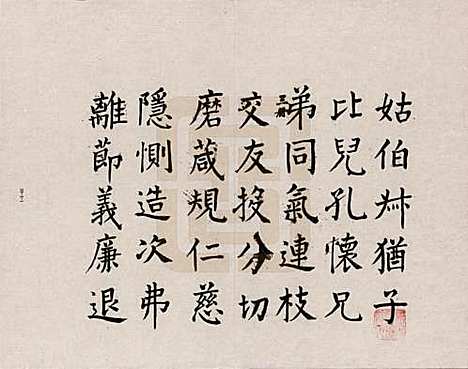 姑伯叔猶子
比兒孔懷兄
弟同氣連枝
交友投分切
磨葴規仁慈
隱惻造次弗
離節義廉退